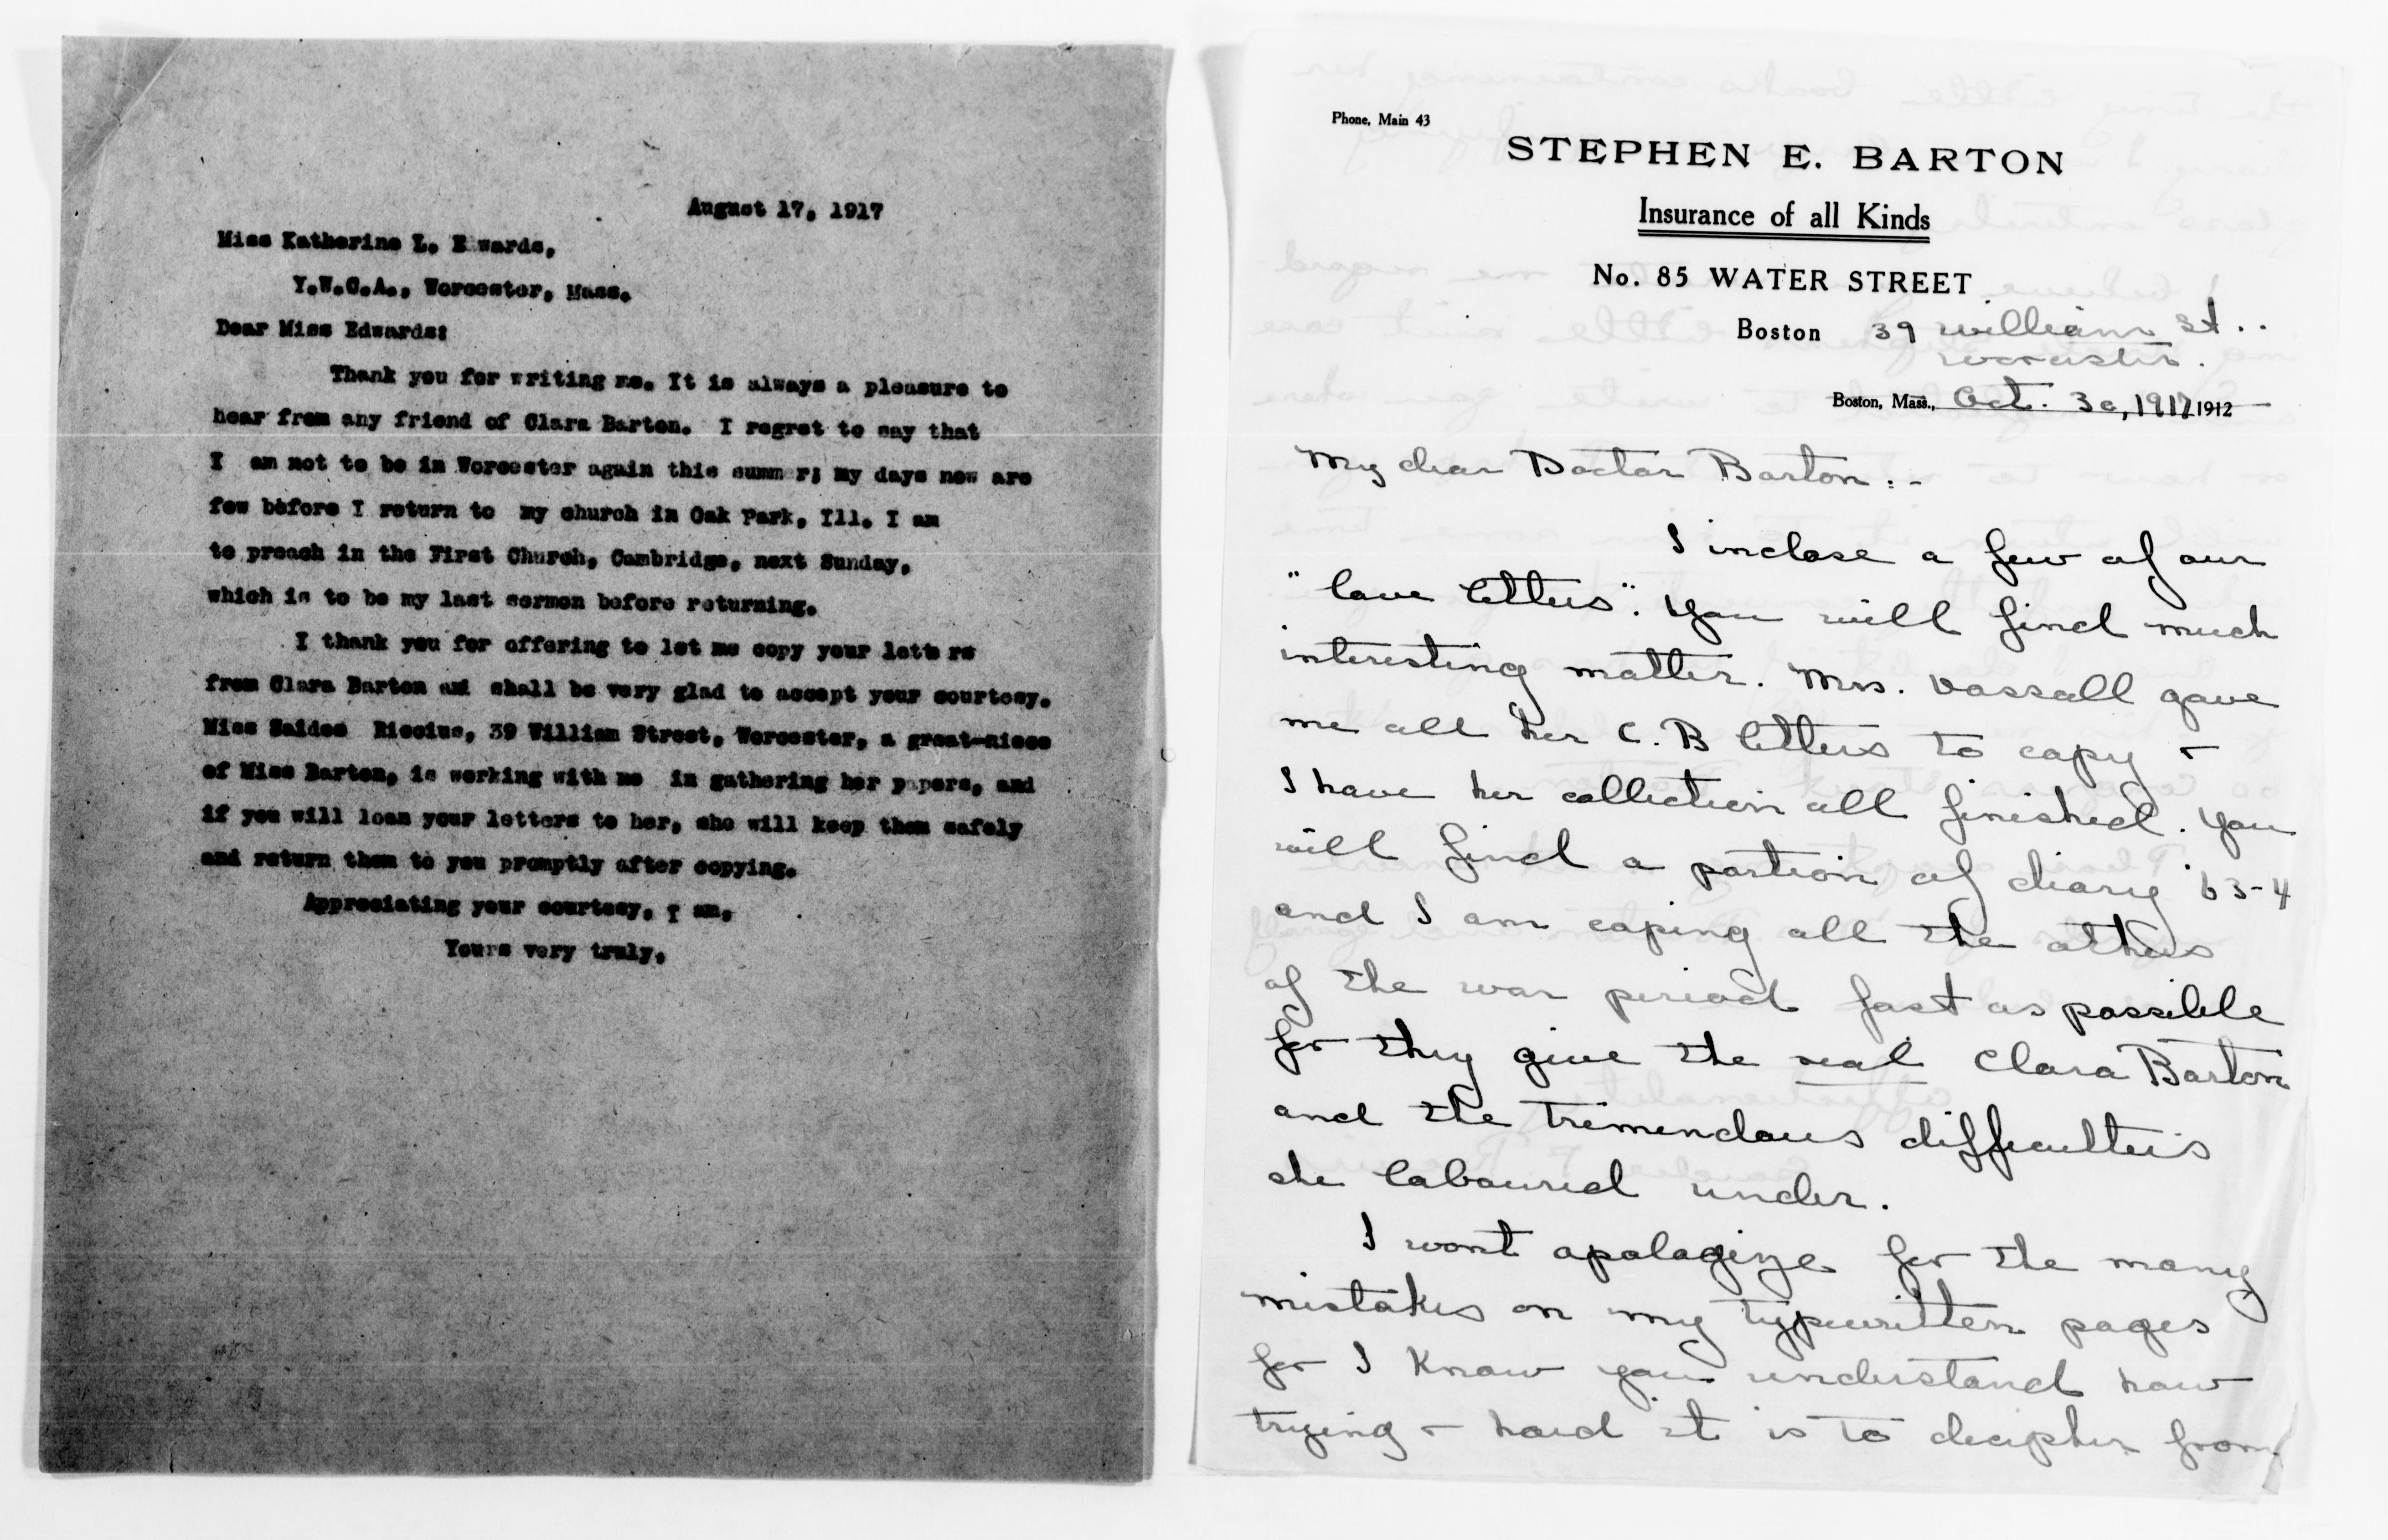 August 17, 1917
Miss Katherine L. E wards,
Y.W.C.A., Worcester, Mass.
Dear Miss Edwards:
Thank you for writing me. It is always a pleasure to
hear from any friend of Clara Barton. I regret to say that
I am not to be in Worcester again this summ r; my days now are
few before I return to my church in Oak Park, Ill. I am
to preach in the First Church, Cambridge, next Sunday,
which is to be my last sermon before returning.
I thank you for offering to let me copy your lett rs
from Clara Barton and shall be very glad to accept your courtesy.
Miss Saidee Riccius, 39 William Street, Worcester, a great-niece
of Miss Barton, is working with me in gathering her papers, and
if you will loan your letters to her, she will keep them safely
and return them to you promptly after copying.
Appreciating your courtesy, I am,
Yours very truly,
Phone, Main 43
STEPHEN E. BARTON
Insurance of all Kinds
No. 85 WATER STREET
Boston 39 William St..
Worcester.
Boston, Mass., Oct. 30, 1917 1912
My dear Doctor Barton:-
I inclose a few of our
"love letters". You will find much
interesting matter. Mrs. Vassall gave
me all her C. B letters to copy +
I have her collection all finished. You
will find a portion of diary '63-4
and I am coping all the others
of the war period fast as possible
for they give the real Clara Barton
and the tremendous difficulties
she laboured under.
I wont apologize for the many
mistakes on my typewritten pages
for I know you understand how
trying + hard it is to decipher from